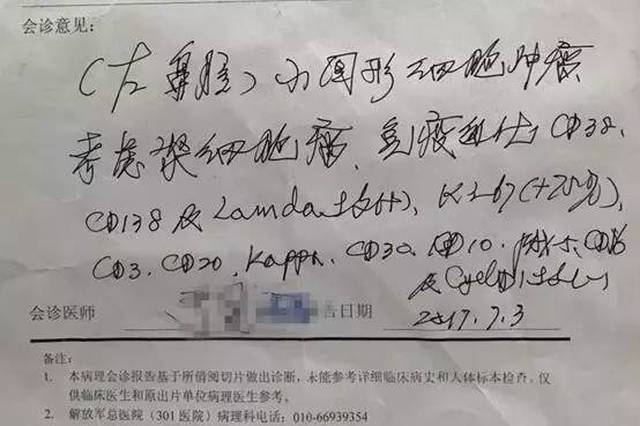 会诊意见:
(左鼻腔)小圆形细胞肿瘤
考虑浆细胞瘤、免疫组化 CD38、
CD138及Lamda均(+)、Ki67(+25%),
CD3.CD20.Kappa.CD30.CD10.
及CyclinD1均(-)
会诊医师 告日期 2017.7.3
备注:
1. 本病理会诊报告基于所借阅切片做出诊断,未能参考详细临床病史和大体标本检查,仅
供临床医生和原出片单位病理医生参考。
2. 解放军总医院(301医院)病理科电话:010-66939354